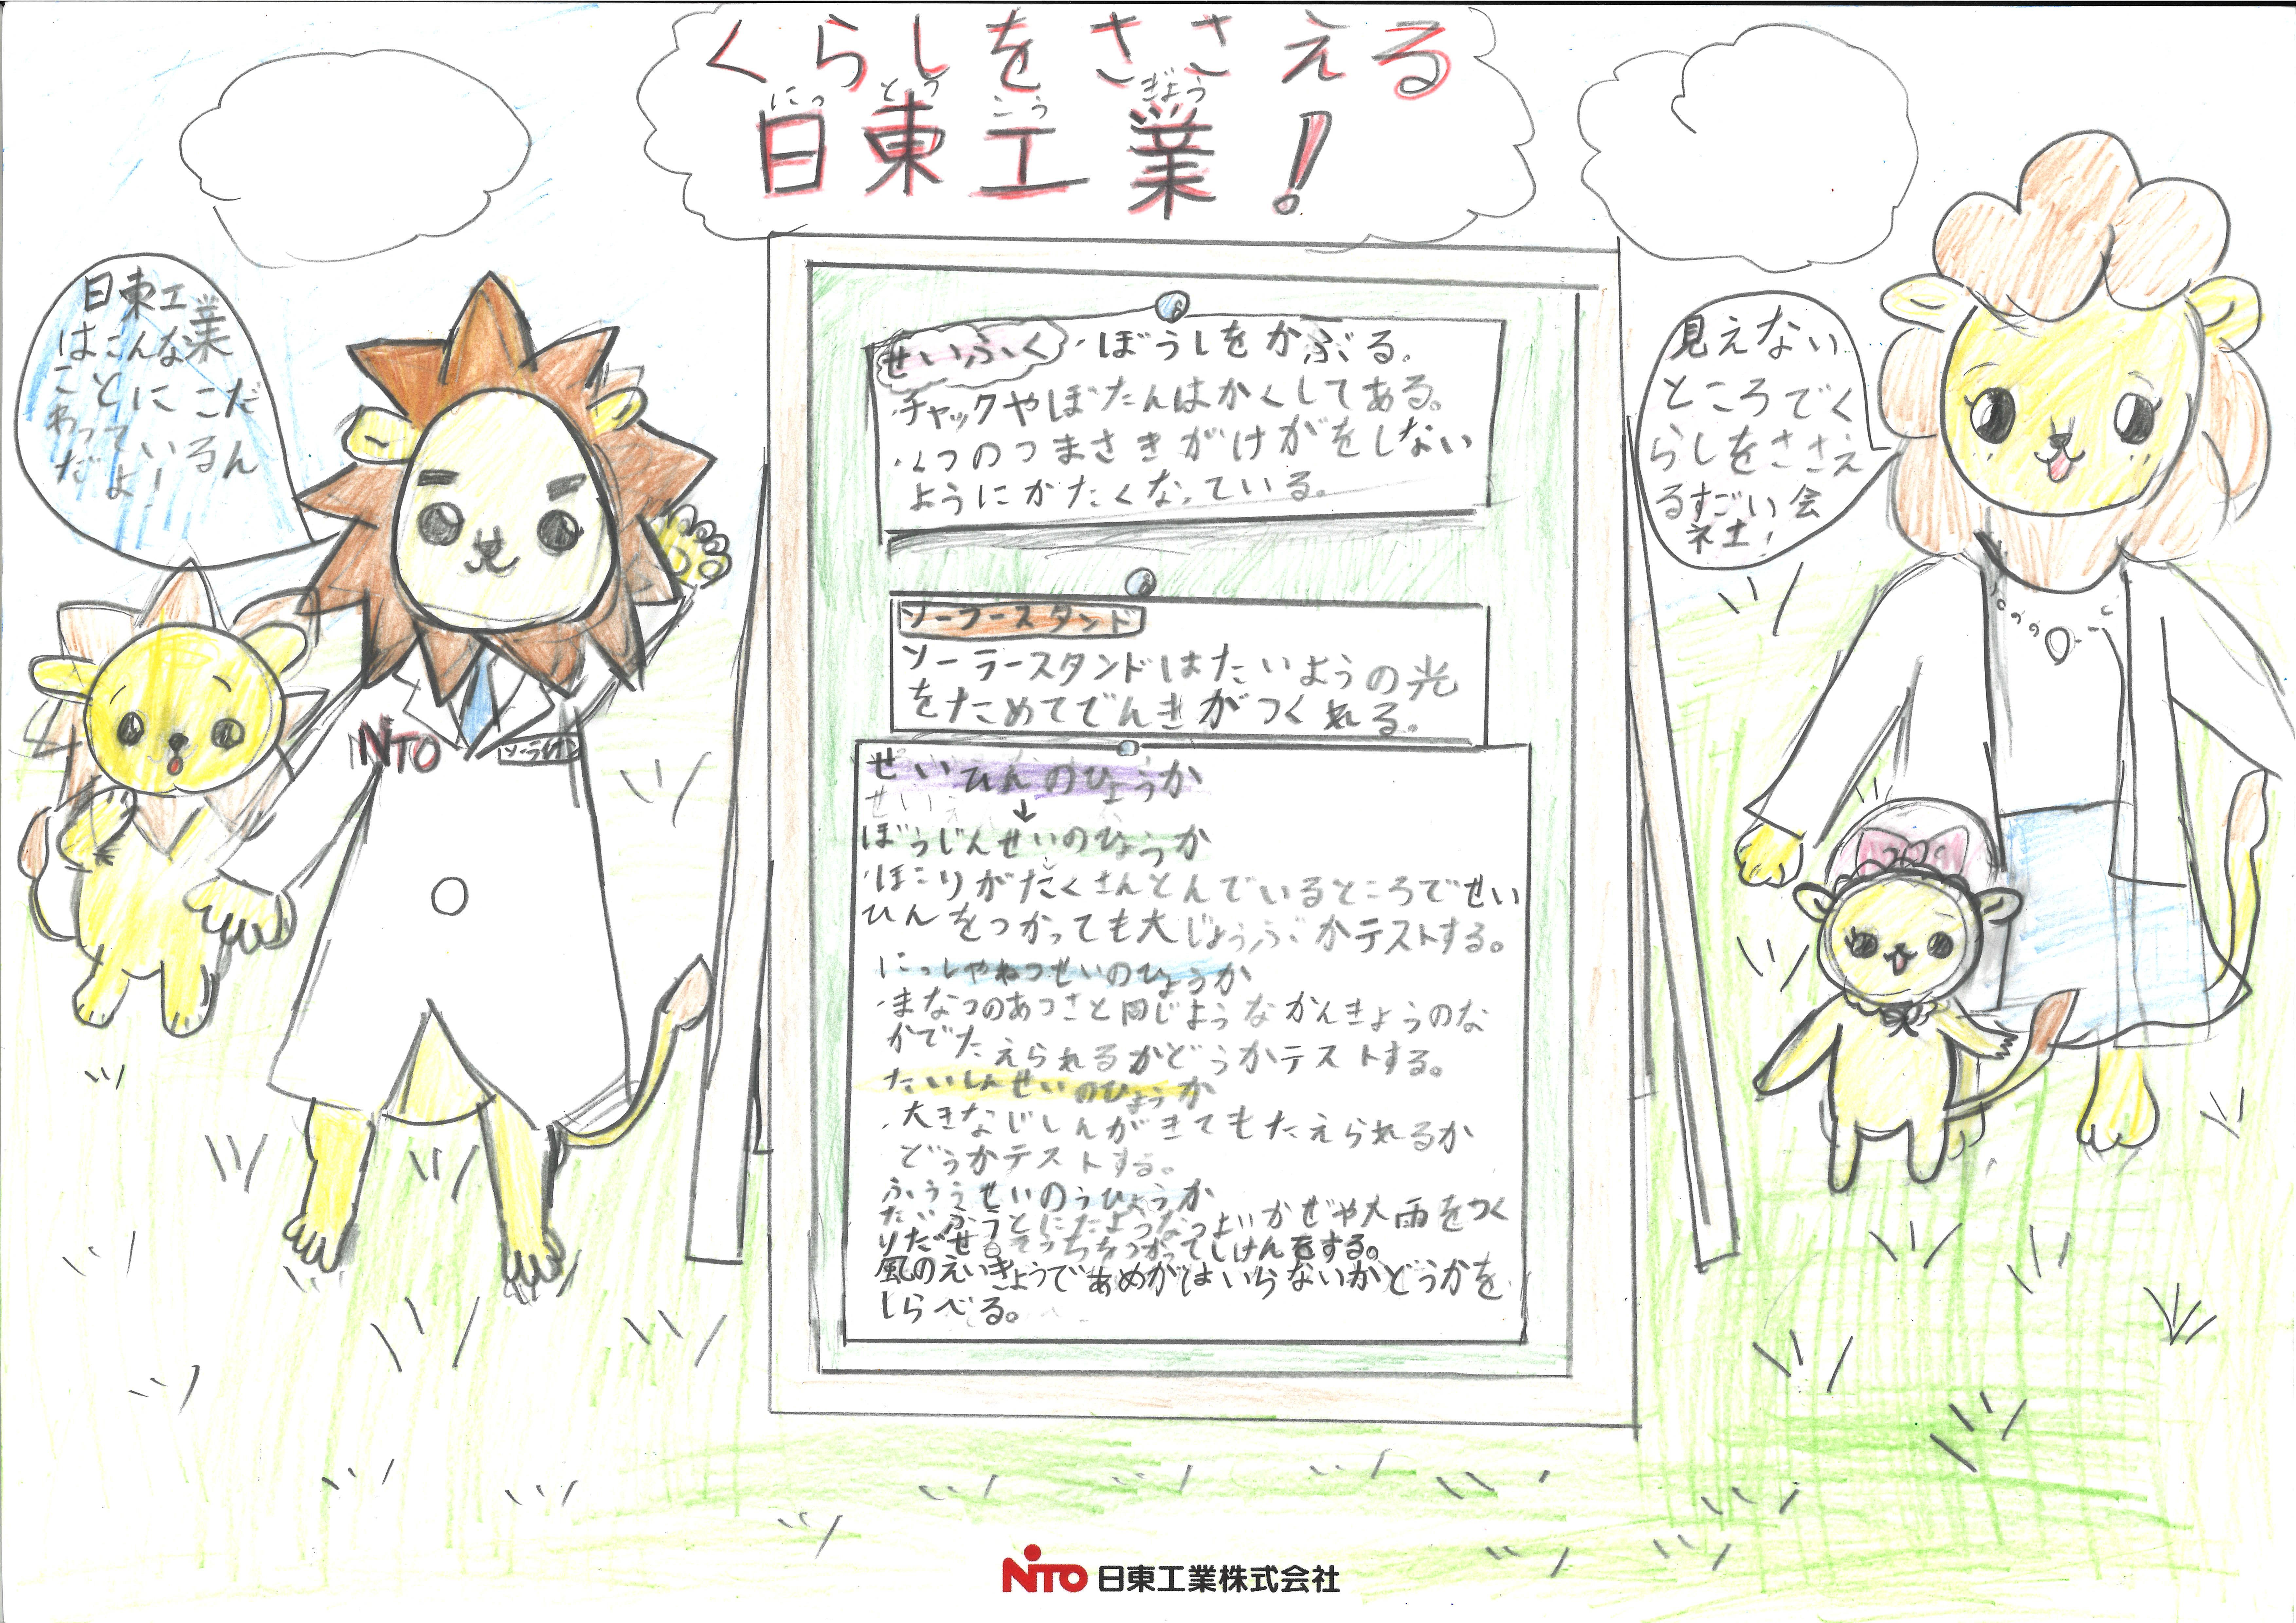 くらしをささえる
にっとうこうぎょう
日東工業!
日東工業
はこんな
ことにこだ
わっている
んだよ!
見えない
ところでく
らしをささえ
るすごい会
社!
NITO
せいふく・ぼうしをかぶる。
・チャックやぼたんはかくしてある。
・くつのつまさきがけがをしない
ようにかたくなっている。
ソーラースタンド
ソーラースタンドはたいようの光
をためてでんきがつくれる。
せいひんのひょうか
↓
ぼうじんせいのひょうか
・ほこりがたくさんとんでいるところでせい
ひんをつかっても大じょうぶかテストする。
にっしゃねつせいのひょうか
・まなつのあつさと同じようなかんきょうのな
かでたえられるかどうかテストする。
たいしんせいのひょうか
・大きなじしんがきてもたえられるか
どうかテストする。
ふううせいのうひょうか
たいふうとにたようなつよいかぜや大雨をつく
りだせるそうちをつかってしけんをする。
風のえいきょうであめがはいらないかどうかを
しらべる。
NITO 日東工業株式会社